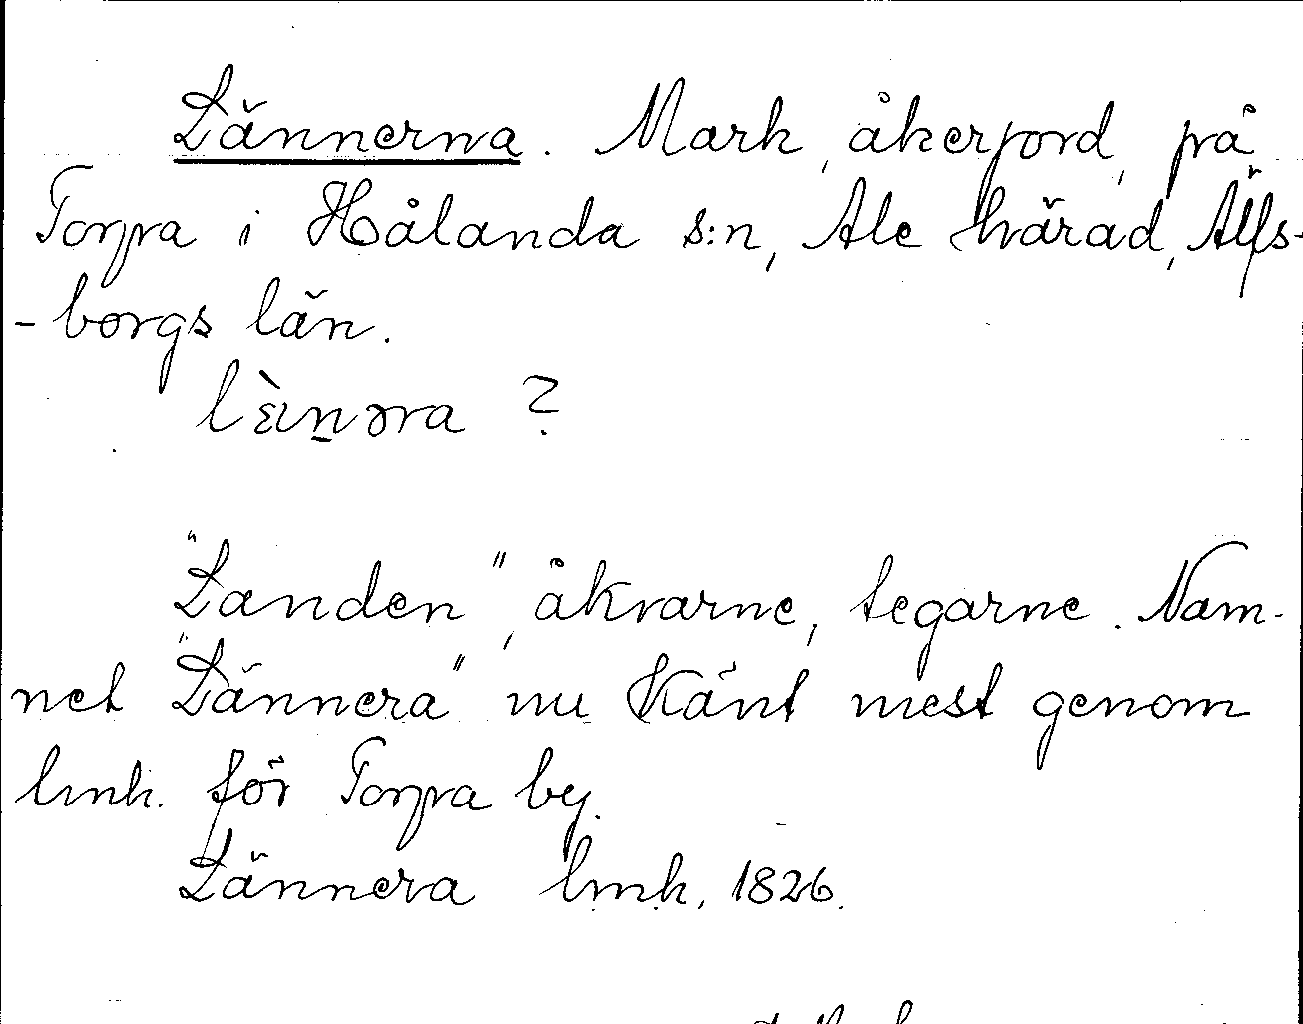 Lännerna. Mark, åkerjord, på
Torpa i Hålanda s:n, Ale härad, Älfs-
-borgs län.
lɛ̀ınəra ?
"Landen", åkrarne, tegarne. Nam-
net "Lännera" nu känt mest genom
lmh. för Torpa by.
Lännera lmh. 1826.